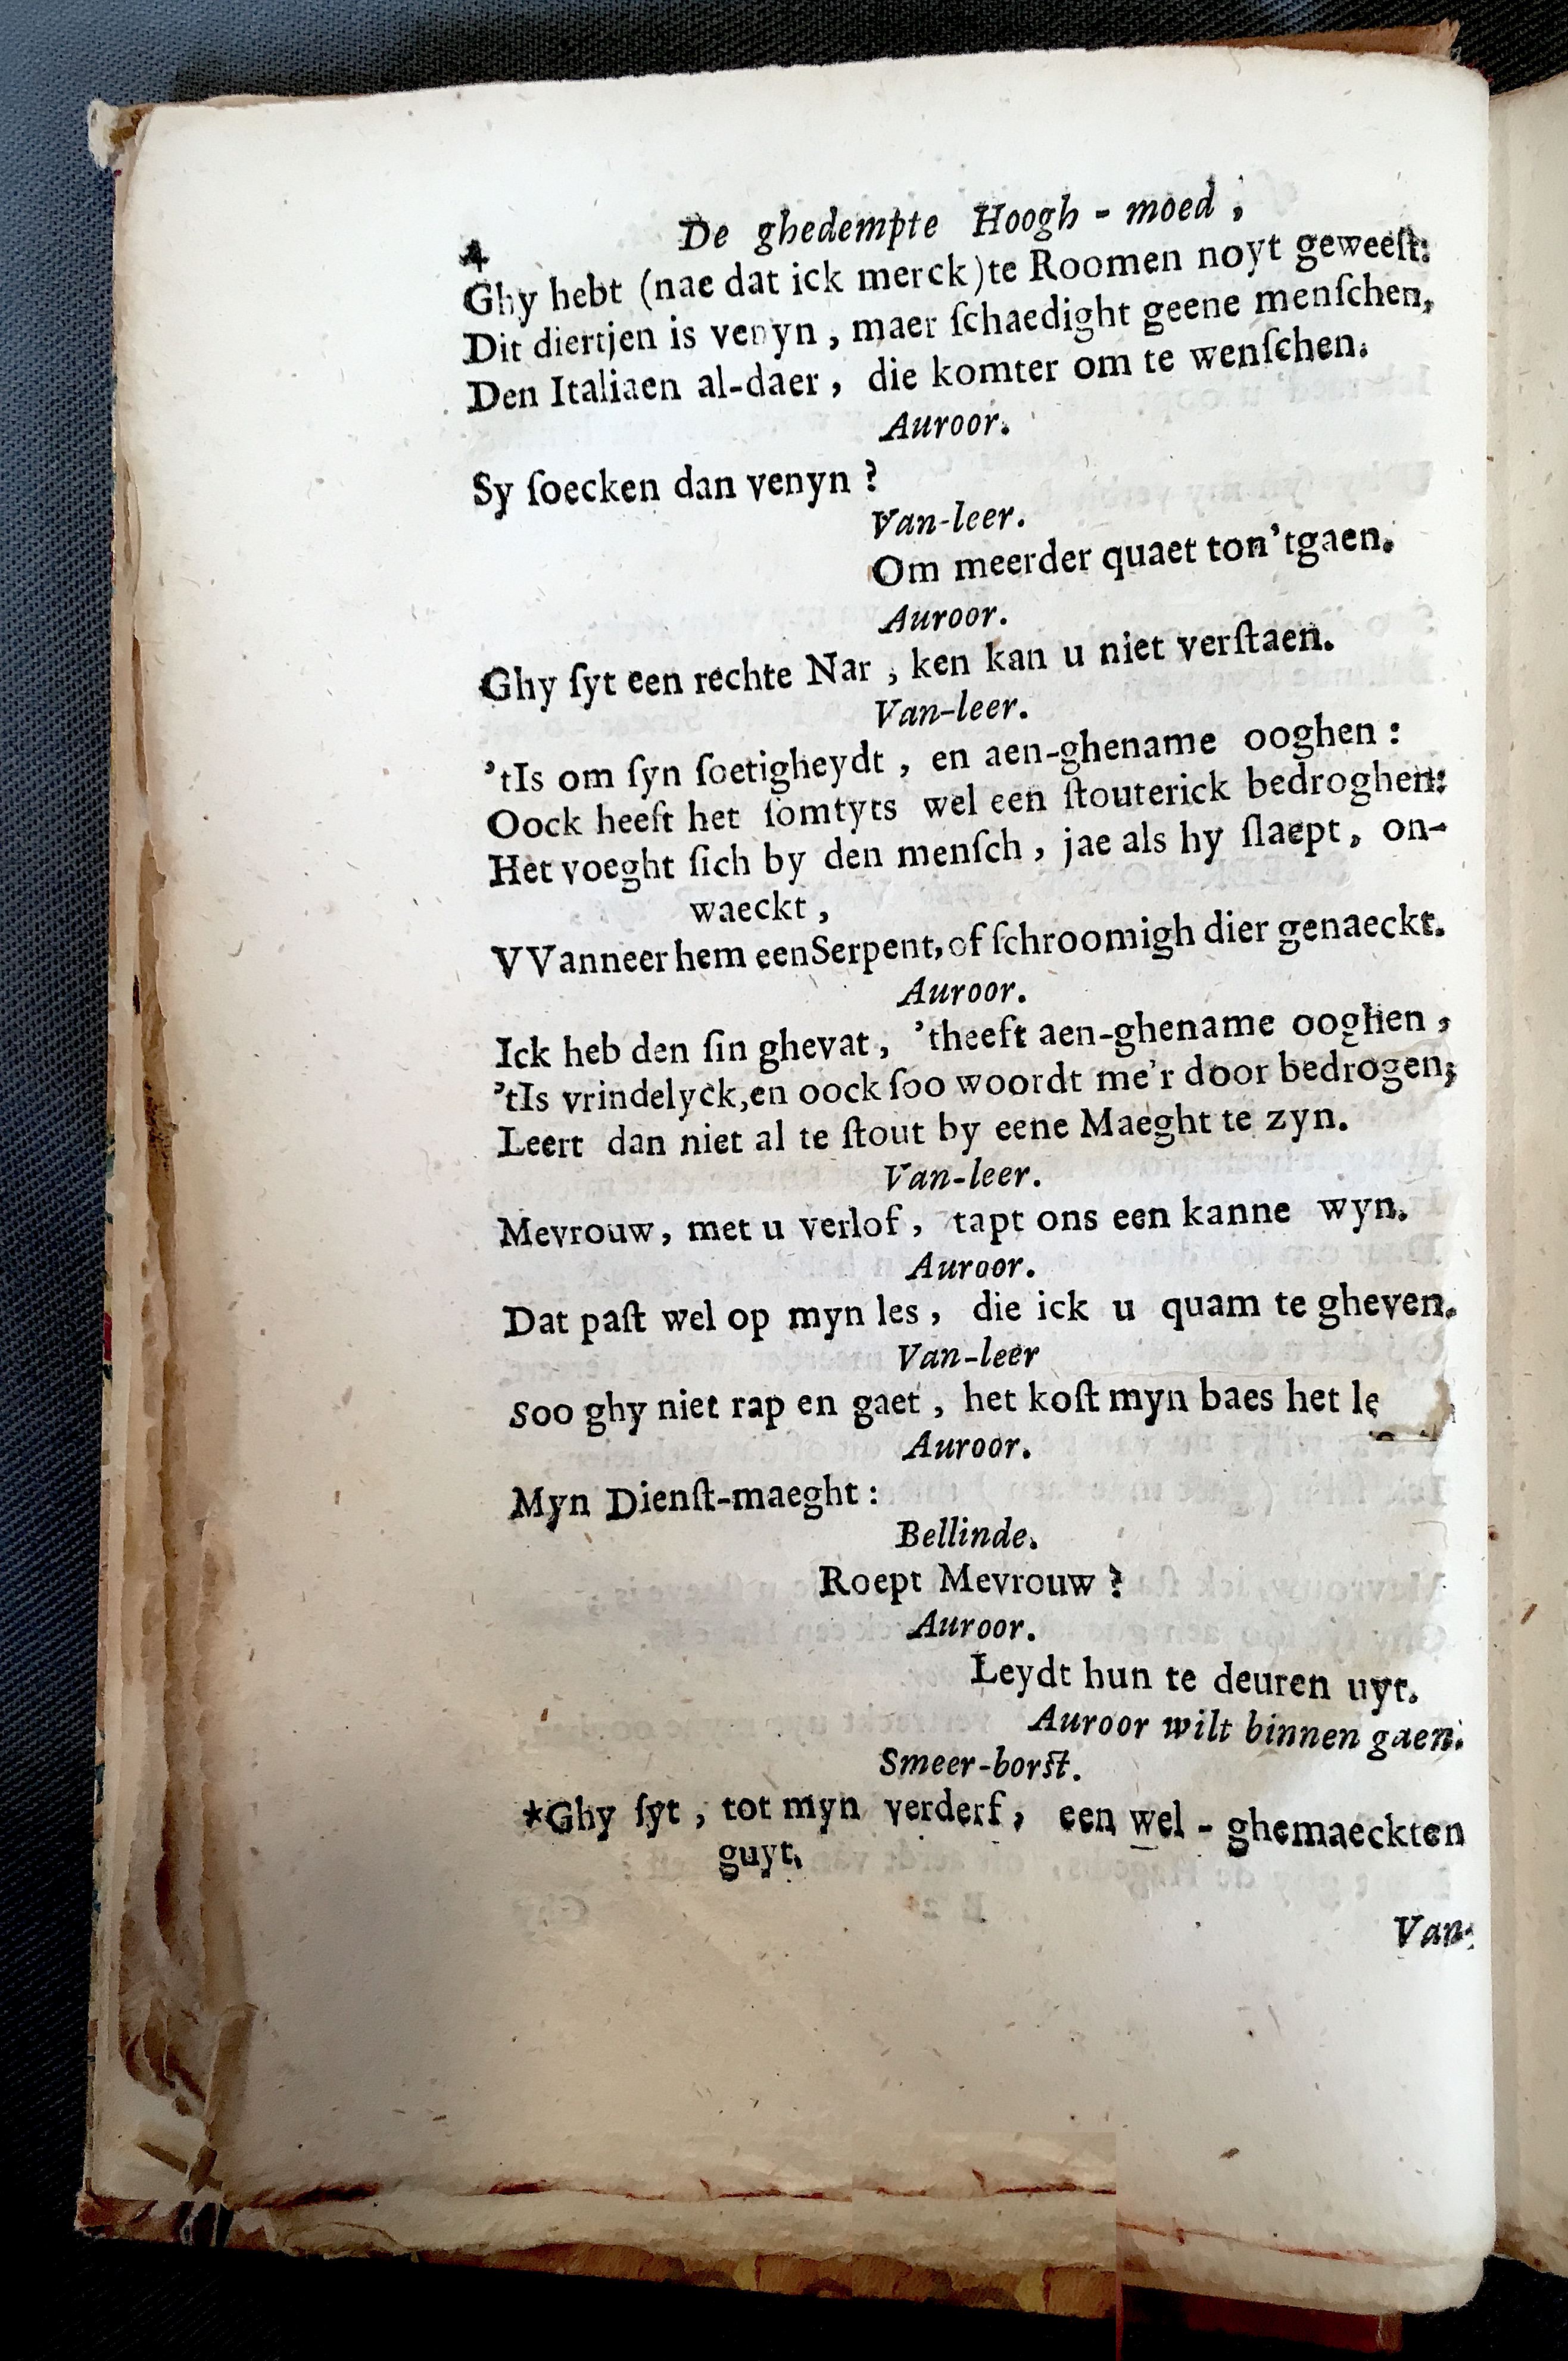 4 De ghedempte Hoogh - moed ,
Ghy hebt (nae dat ick merck)te Roomen noyt geweeſt:
Dit diertjen is venyn , maer ſchaedight geene menſchen,
Den Italiaen al-daer , die komter om te wenſchen.
Auroor.
Sy ſoecken dan venyn ?
Van-leer.
Om meerder quaet ton'tgaen.
Auroor.
Ghy ſyt een rechte Nar , ken kan u niet verſtaen.
Van-leer.
'tIs om ſyn ſoetigheydt , en aen-ghename ooghen :
Oock heeft het ſomtyts wel een ſtouterick bedroghen:
Het voeght ſich by den menſch , jae als hy ſlaept , on-
waeckt ,
VVanneer hem eenSerpent,of ſchroomigh dier genaeckt.
Auroor.
Ick heb den ſin ghevat , 'theeft aen-ghename ooghen ,
'tIs vrindelyck,en oock ſoo woordt me'r door bedrogen;
Leert dan niet al te ſtout by eene Maeght te zyn.
Van-leer.
Mevrouw, met u verlof , tapt ons een kanne wyn.
Auroor.
Dat paſt wel op myn les , die ick u quam te gheven.
Van-leer
Soo ghy niet rap en gaet , het koſt myn baes het le
Auroor.
Myn Dienſt-maeght :
Bellinde.
Roept Mevrouw ?
Auroor.
Leydt hun te deuren uyt.
Auroor wilt binnen gaen.
Smeer-borſt.
*Ghy ſyt , tot myn verderf , een wel - ghemaeckten
guyt.
Van-